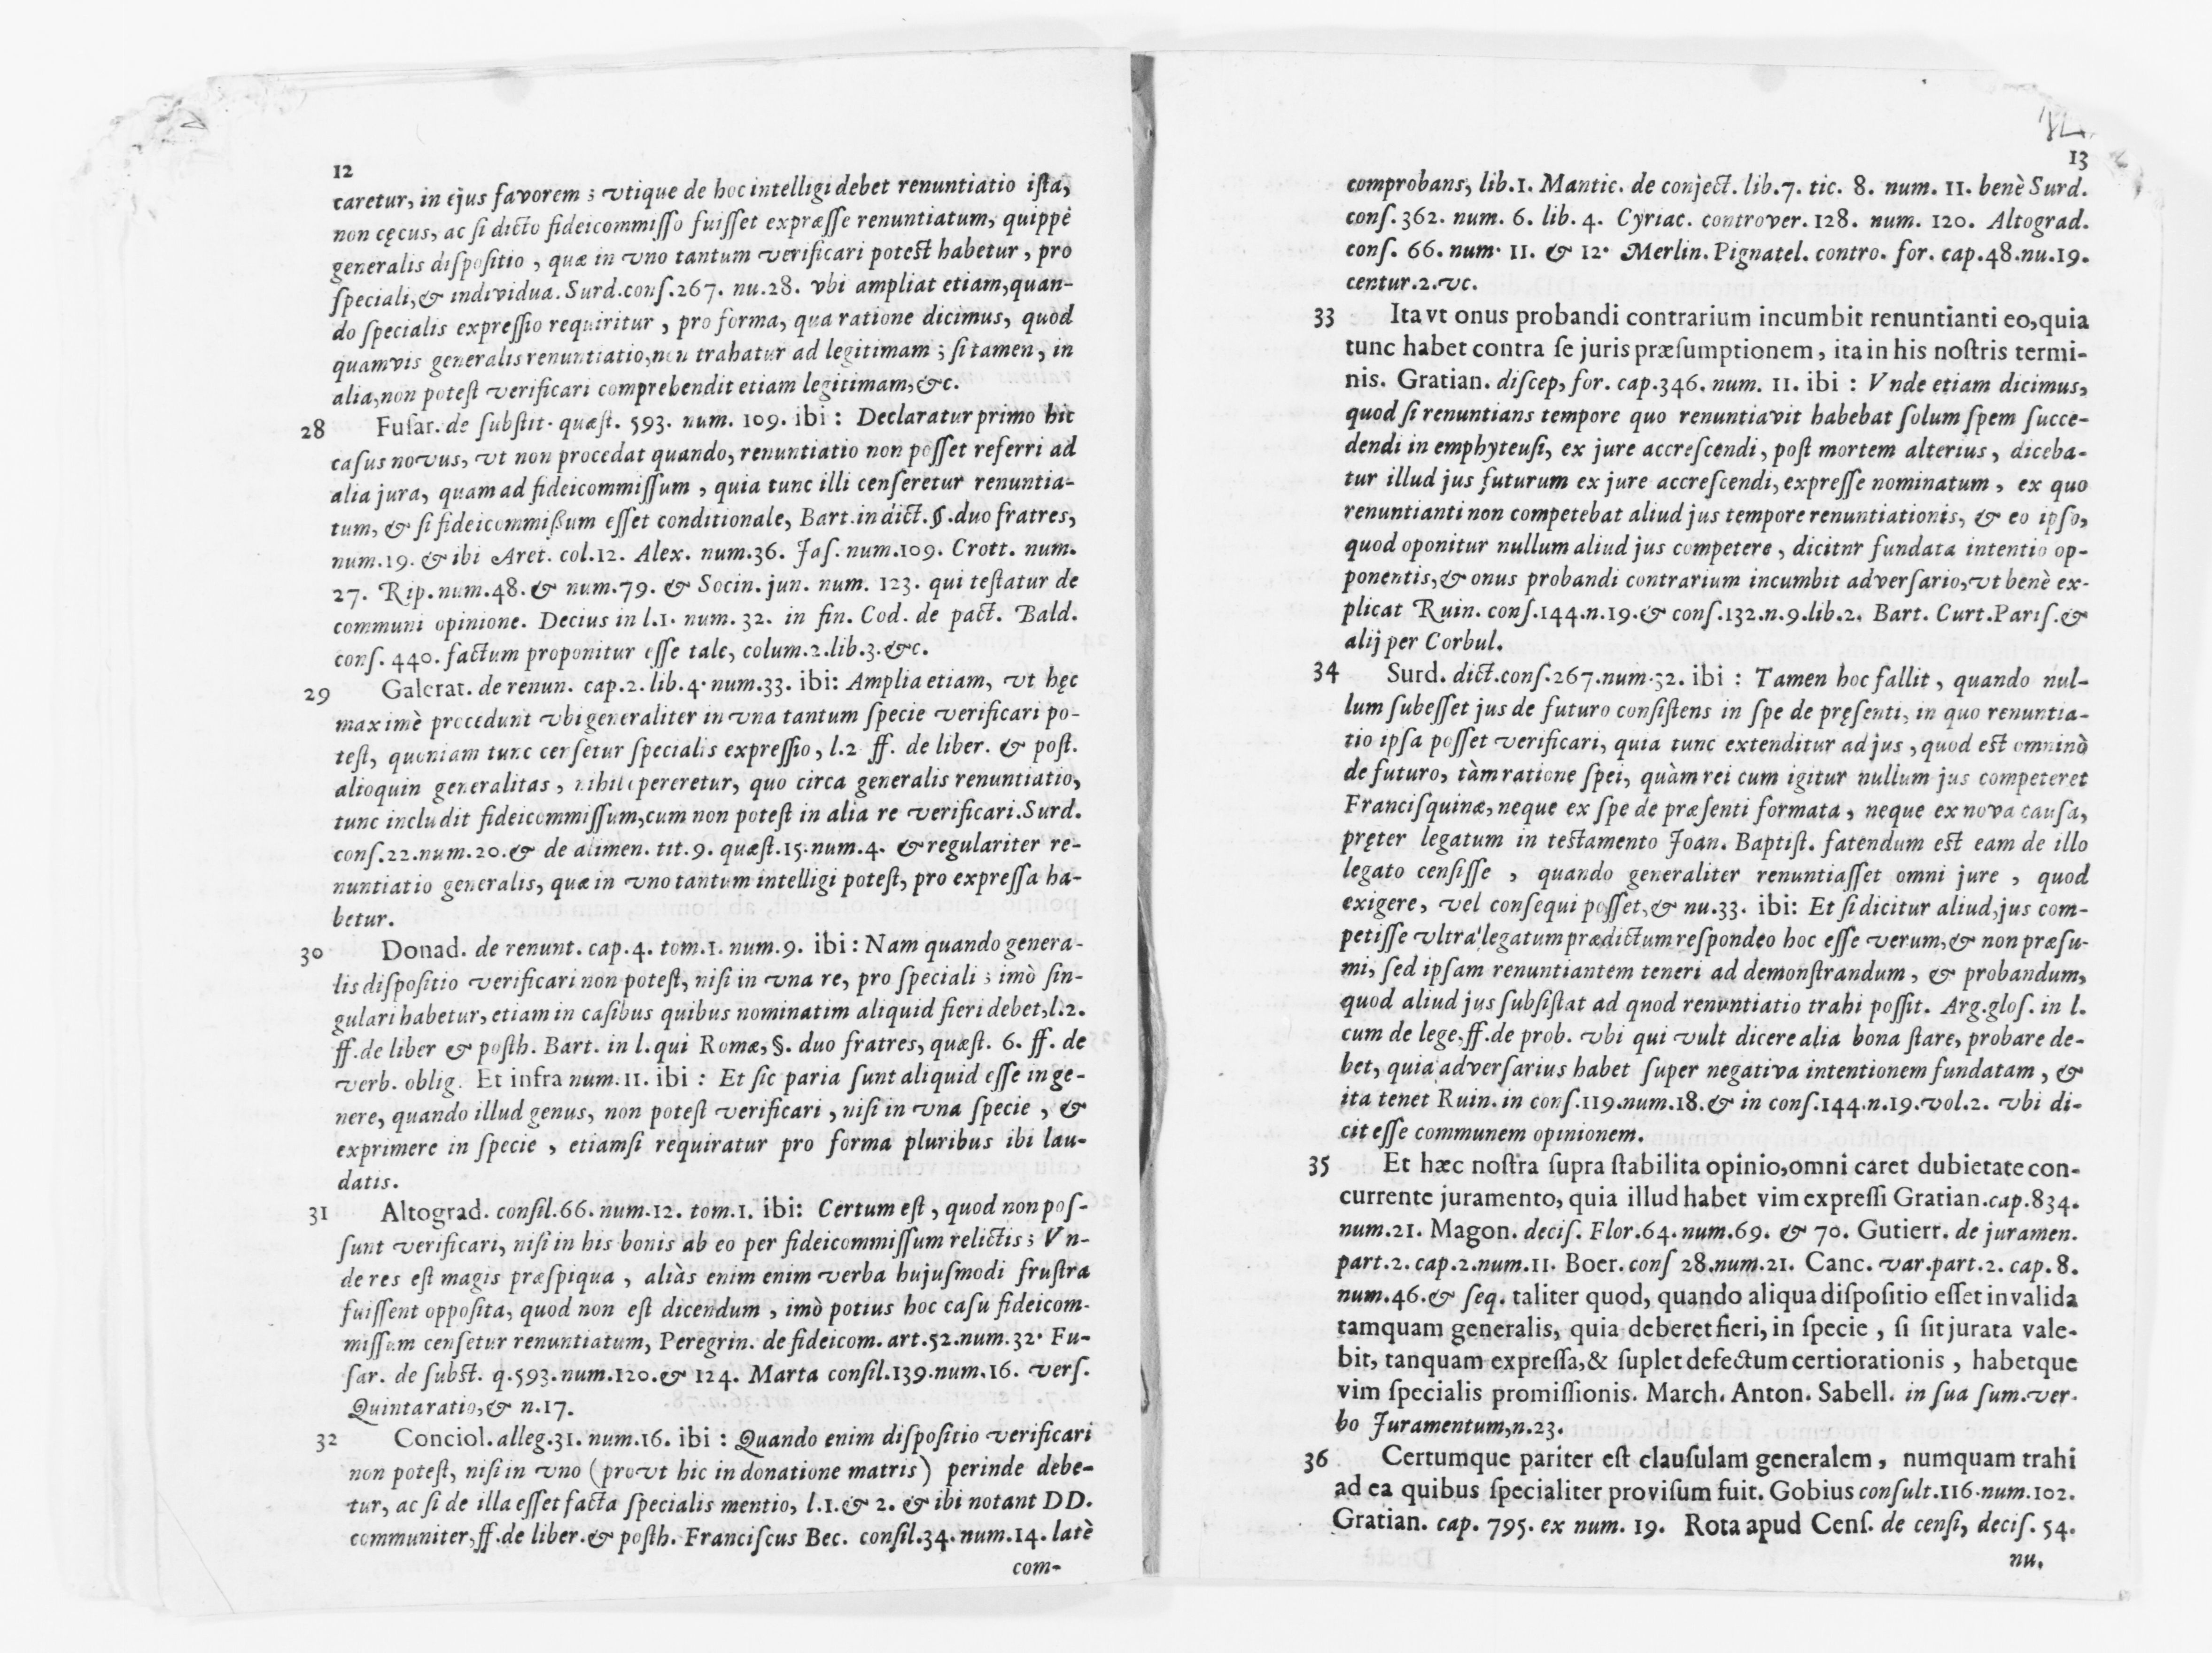 12
caretur, in ejus favorem ; vtique de hoc intelligi debet renuntiatio ista,
non cęcus, ac si dicto fideicommisso fuisset expræsse renuntiatum, quippè
generalis dispositio , quæ in vno tantum verificari potest habetur , pro
speciali,& individua. Surd.cons.267. nu.28. vbi ampliat etiam,quan-
do specialis expressio requiritur , pro forma, qua ratione dicimus, quod
quamvis generalis renuntiatio,non trahatur ad legitimam ; si tamen, in
alia,non potest verificari comprehendit etiam legitimam,&c.
28 Fusar. de substit. quæst. 593. num. 109. ibi : Declaratur primo hic
casus novus, vt non procedat quando, renuntiatio non posset referri ad
alia jura, quam ad fideicommissum , quia tunc illi censeretur renuntia-
tum, & si fideicommissum esset conditionale, Bart.in dict.§.duo fratres,
num.19. & ibi Aret. col.12. Alex. num.36. Jas. num.109. Crott. num.
27. Rip.num.48.& num.79. & Socin. jun. num. 123. qui testatur de
communi opinione. Decius in l.1. num. 32. in fin. Cod. de pact. Bald.
cons. 440. factum proponitur esse tale, colum.2.lib.3.&c.
29 Galerat. de renun. cap.2. lib.4.num.33. ibi: Amplia etiam, vt hęc
maximè procedunt vbi generaliter in vna tantum specie verificari po-
test, quoniam tunc censetur specialis expressio, l.2 ff. de liber. & post.
alioquin generalitas , nihil opereretur, quo circa generalis renuntiatio,
tunc includit fideicommissum,cum non potest in alia re verificari.Surd.
cons.22.num.20.& de alimen. tit.9. quæst.15.num.4. & regulariter re-
nuntiatio generalis, quæ in vno tantum intelligi potest, pro expressa ha-
betur.
30 Donad. de renunt. cap.4. tom.1. num.9. ibi : Nam quando genera-
lis dispositio verificari non potest, nisi in vna re, pro speciali ; imò sin-
gulari habetur, etiam in casibus quibus nominatim aliquid fieri debet,l.2.
ff.de liber & posth. Bart. in l.qui Romæ, §. duo fratres, quæst. 6. ff. de
verb. oblig. Et infra num.11. ibi : Et sic paria sunt aliquid esse in ge-
nere, quando illud genus, non potest verificari , nisi in vna specie , &
exprimere in specie , etiamsi requiratur pro forma pluribus ibi lau-
datis.
31 Altograd. consil.66. num.12. tom.1. ibi: Certum est , quod non pos-
sunt verificari, nisi in his bonis ab eo per fideicommissum relictis ; Vn-
de res est magis præspiqua , aliàs enim enim verba hujusmodi frustra
fuissent opposita, quod non est dicendum , imò potius hoc casu fideicom-
missum censetur renuntiatum, Peregrin. de fideicom. art.52.num.32. Fu-
sar. de subst. q.593.num.120.& 124. Marta consil.139.num.16. vers.
Quinta ratio,& n.17.
32 Conciol.alleg.31. num.16. ibi : Quando enim dispositio verificari
non potest, nisi in vno (provt hic in donatione matris) perinde debe-
tur, ac si de illa esset facta specialis mentio, l.1.& 2. & ibi notant DD.
communiter,ff.de liber.& posth. Franciscus Bec. consil.34. num.14. latè
com-
13
comprobans, lib.1. Mantic. de conject. lib.7. tic. 8. num. 11. benè Surd.
cons. 362. num. 6. lib. 4. Cyriac. controver. 128. num. 120. Altograd.
cons. 66. num. 11. & 12. Merlin. Pignatel. contro. for. cap.48.nu.19.
centur.2.vc.
33 Ita vt onus probandi contrarium incumbit renuntianti eo,quia
tunc habet contra se juris præsumptionem , ita in his nostris termi-
nis. Gratian. discep, for. cap.346. num. 11. ibi : Vnde etiam dicimus,
quod si renuntians tempore quo renuntiavit habebat solum spem succe-
dendi in emphyteusi, ex jure accrescendi , post mortem alterius , diceba-
tur illud jus futurum ex jure accrescendi, expresse nominatum , ex quo
renuntianti non competebat aliud jus tempore renuntiationis, & eo ipso,
quod oponitur nullum aliud jus competere , dicitnr fundata intentio op-
ponentis,& onus probandi contrarium incumbit adversario,vt benè ex-
plicat Ruin. cons.144.n.19.& cons.132.n.9.lib.2. Bart. Curt.Paris.&
alij per Corbul.
34 Surd. dict.cons.267.num.32. ibi : Tamen hoc fallit , quando nul-
lum subesset jus de futuro consistens in spe de pręsenti, in quo renuntia-
tio ipsa posset verificari, quia tunc extenditur ad jus , quod est omninò
de futuro, tàm ratione spei, quàm rei cum igitur nullum jus competeret
Francisquinæ, neque ex spe de præsenti formata , neque ex nova causa,
pręter legatum in testamento Joan. Baptist. fatendum est eam de illo
legato censisse , quando generaliter renuntiasset omni jure , quod
exigere, vel consequi posset,& nu.33. ibi: Et si dicitur aliud,jus com-
petisse vltra legatum prædictum respondeo hoc esse verum,& non præsu-
mi, sed ipsam renuntiantem teneri ad demonstrandum , & probandum,
quod aliud jus subsistat ad qnod renuntiatio trahi possit. Arg.glos. in l.
cum de lege,ff.de prob. vbi qui vult dicere alia bona stare, probare de-
bet, quia adversarius habet super negativa intentionem fundatam , &
ita tenet Ruin. in cons.119.num.18.& in cons.144.n.19.vol.2. vbi di-
cit esse communem opinionem.
35 Et hæc nostra supra stabilita opinio,omni caret dubietate con-
currente juramento, quia illud habet vim expressi Gratian.cap.834.
num.21. Magon. decis. Flor.64.num.69. & 70. Gutierr. de juramen.
part.2. cap.2.num.11. Boer. cons 28.num.21. Canc. var.part.2. cap.8.
num.46.& seq. taliter quod, quando aliqua dispositio esset invalida
tamquam generalis, quia deberet fieri, in specie , si sit jurata vale-
bit, tanquam expressa,& suplet defectum certiorationis , habetque
vim specialis promissionis. March. Anton. Sabell. in sua sum.ver-
bo Juramentum,n.23.
36 Certumque pariter est clausulam generalem , numquam trahi
ad ea quibus specialiter provisum fuit. Gobius consult.116.num.102.
Gratian. cap. 795. ex num. 19. Rota apud Cens. de censi, decis. 54.
nu.